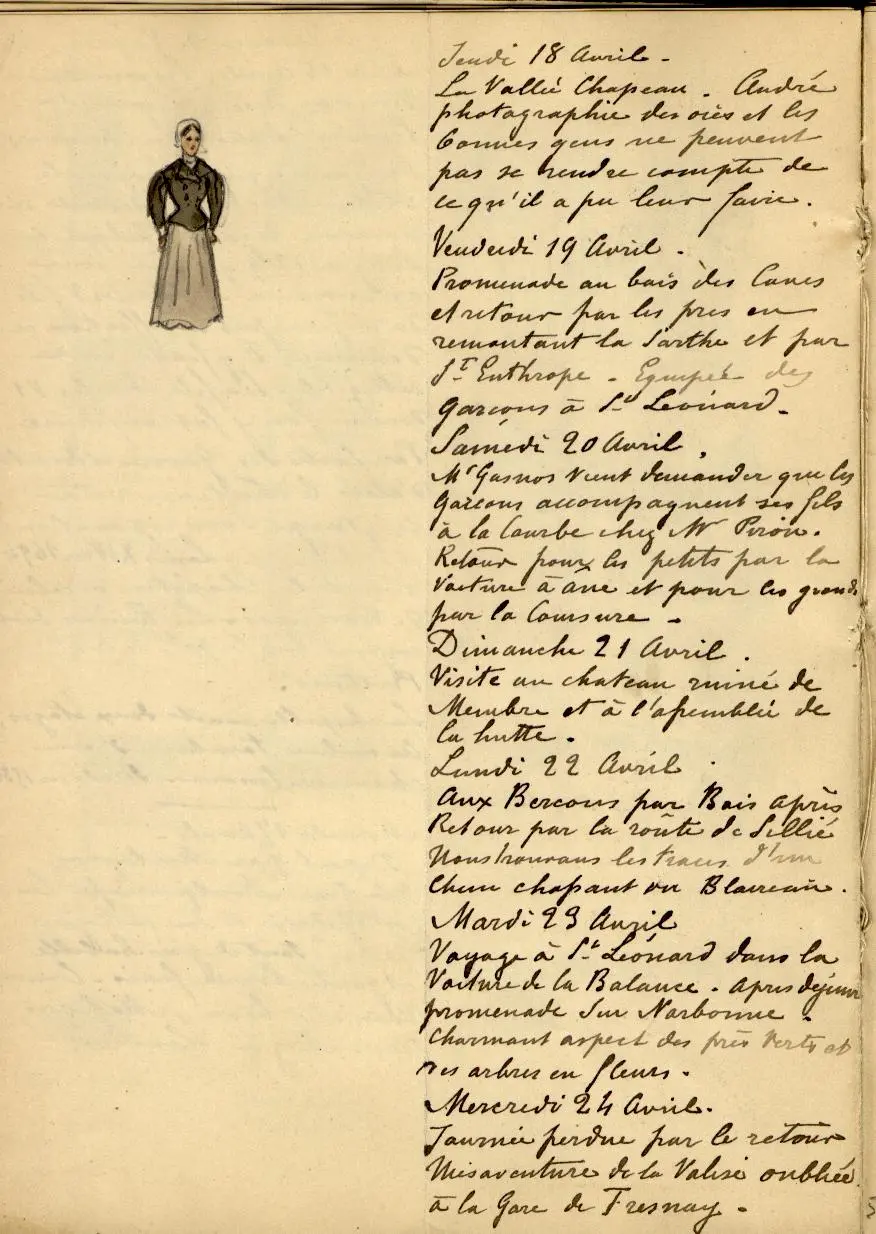 Jeudi 18 Avril -
La Vallée Chapeau. André
photographie des oies et les
bonnes gens ne peuvent
pas se rendre compte de
ce qu'il a pu leur faire.
Vendredi 19 Avril.
Promenade au bois des Caves
et retour par les pres en
remontant la Sarthe et par
St Euthrope - Equipée des
Garcons à St Léonard.
Samedi 20 Avril.
Mr Gasnos vient demander que les
Garcons accompagnent ses fils
à la Courbe chez Mr Piron.
Retour pour les petits par la
Voiture à âne et pour les grands
par la Coursure -
Dimanche 21 Avril.
Visite au chateau ruiné de
Membre et à l'assemblée de
la hutte.
Lundi 22 Avril
Aux Bercons par Bois après
Retour par la route de Sillié
Nous trouvons les traces d'un
Chien chassant un Blaireau.
Mardi 23 Avril
Voyage à St Léonard dans la
Voiture de la Balance. Après déjeuner
promenade sur Narbonne.
Charmant aspect des près verts et
des arbres en fleurs.
Mercredi 24 Avril.
Journée perdue par le retour
Mesaventure de la Valise oubliée
à la Gare de Fresnay.